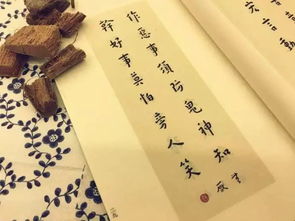 作惡事須防鬼神知
幹好事莫怕旁人笑